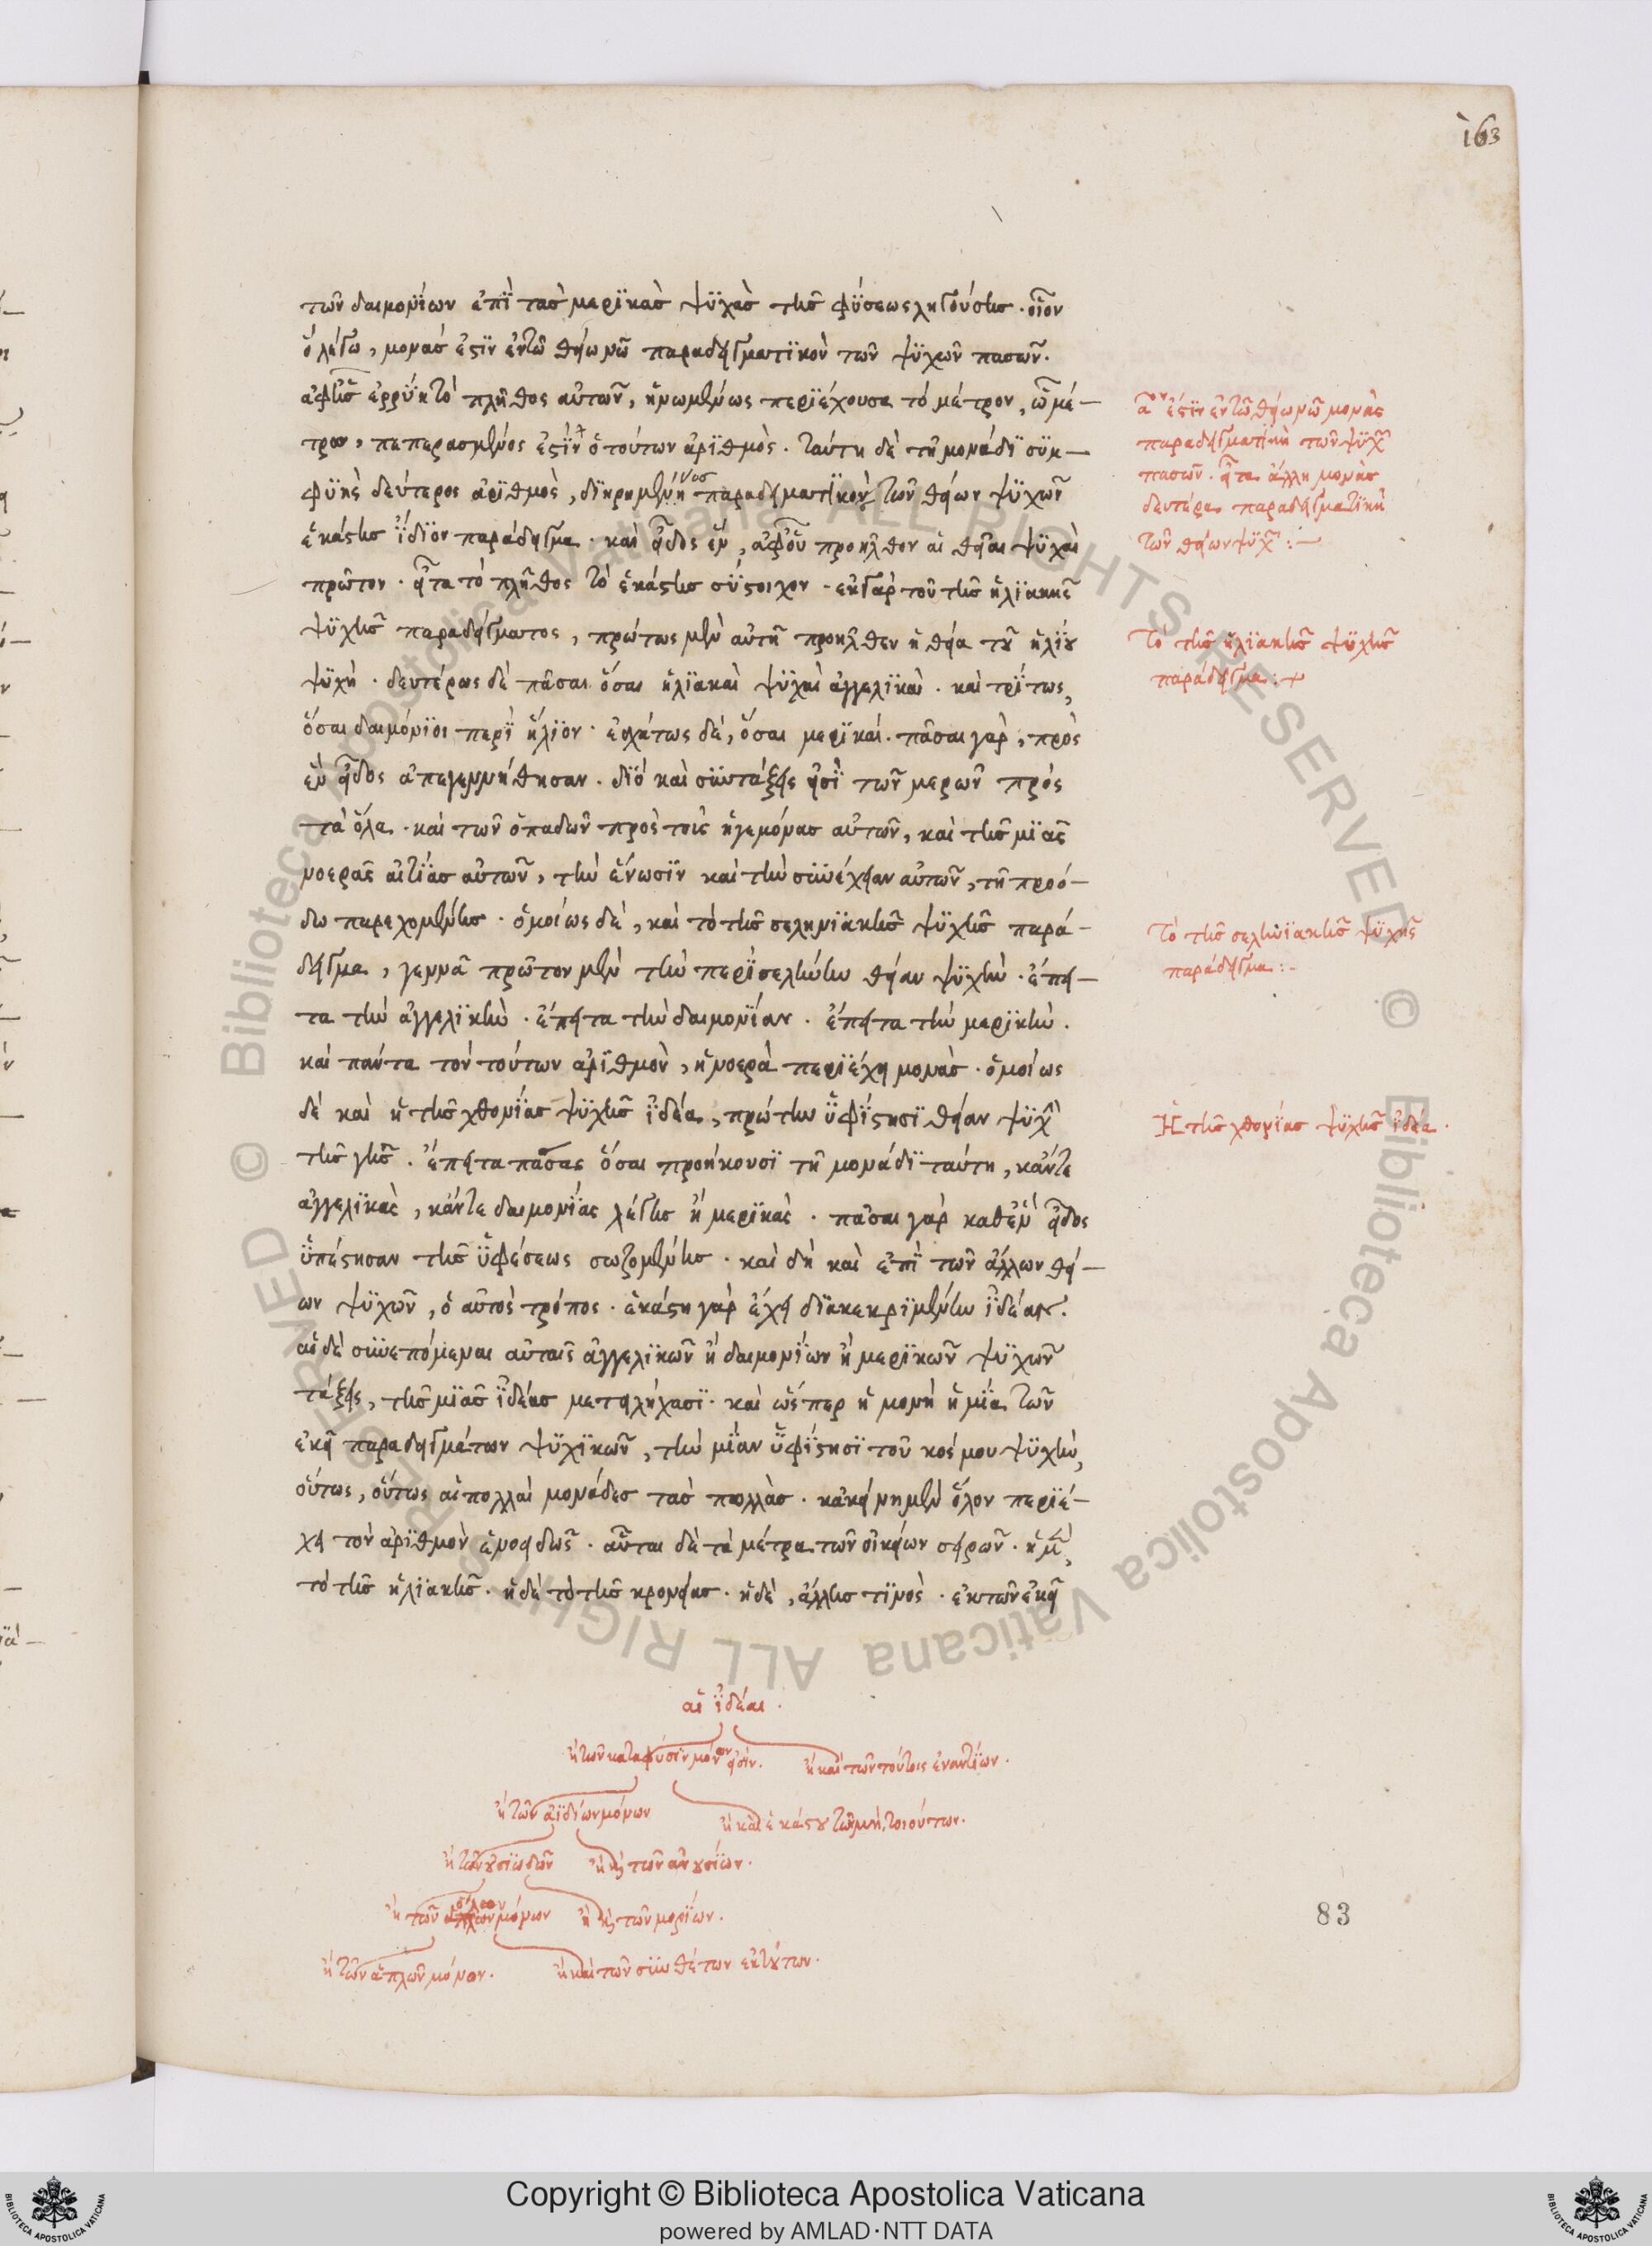 163
τῶν δαιμονίων ἐπὶ τὰς μερικὰς ψυχὰς τῆς ὑφέσεως ληγούσης. οἷον
ὃ λέγω, μονάς ἐστιν ἐν τῶ θείω νῶ παραδειγματικὸν τῶν ψυχῶν πασῶν.
ἀφ' ἧς ἐρρύη τὸ πλῆθος αὐτῶν, ἡνωμένως περιέχουσα τὸ μέτρον, ὧ μέ-
τρον, πεπερασμένος ἐστὶν ὁ τούτων ἀριθμὸς. ταύτη δὲ τῆ μονάδι συμ-
φυὴς δεύτερος ἀριθμὸς, διηρημένη παραδειγματικὸν τῶν θείων ψυχῶν
ἑκάστης ἴδιον παράδειγμα. καὶ εἶδος ἓν, ἀφ' οὗ προῆλθον αἱ θεῖαι ψυχαὶ
πρῶτον. εἶτα τὸ πλῆθος τὸ ἑκάστης σύστοιχον. ἐκ γὰρ τοῦ τῆς ἡλιακῆς
ψυχῆς παραδείγματος, πρώτως μὲν αὐτὴ προῆλθεν ἡ θεία τοῦ ἡλίου
ψυχὴ. δευτέρως δὲ πᾶσαι ὅσαι ἡλιακαὶ ψυχαὶ ἀγγελικαὶ. καὶ τρίτως,
ὅσαι δαιμόνιοι περὶ ἥλιον. ἐσχάτως δέ, ὅσαι μερικαί. πᾶσαι γὰρ, πρὸς
ἓν εἶδος ἀπεγεννήθησαν. διό καὶ συντάξεις εἰσὶ τῶν μερῶν πρὸς
τὰ ὅλα. καὶ τῶν ὀπαδῶν πρὸς τοὺς ἡγεμόνας αὐτῶν, καὶ τῆς μιᾶς
νοερᾶς αἰτίας αὐτῶν, τὴν ἕνωσιν καὶ τὴν συνέχειαν αὐτῶν, τῆ προό-
δω παρεχομένης. ὁμοίως δὲ, καὶ τὸ τῆς σεληνιακῆς ψυχῆς παρά-
δειγμα, γεννᾶ πρῶτον μὲν τὴν περὶ σελήνην θείαν ψυχὴν. ἔπει-
τα τὴν ἀγγελικὴν. ἔπειτα τὴν δαιμονίαν. ἔπειτα τὴν μερικὴν.
καὶ πάντα τὸν τούτων ἀριθμὸν, ἡ νοερὰ περιέχει μονὰς. ὁμοίως
δὲ καὶ ἡ τῆς χθονίας ψυχῆς ἰδέα, πρώτην ὑφίστησι θείαν ψυχὴν
τῆς γῆς. ἔπειτα πάσας ὅσαι προήκουσι τῆ μονάδι ταύτη, κἄντε
ἀγγελικὰς, κἄντε δαιμονίας λέγης ἢ μερικὰς. πᾶσαι γὰρ καθ' ἓν εἶδος
ὑπέστησαν τῆς ὑφέσεως σωζομένης. καὶ δὴ καὶ ἐπὶ τῶν ἄλλων θεί-
ων ψυχῶν, ὁ αὐτὸς τρόπος. ἑκάστη γὰρ ἔχει διακεκριμένην ἰδέαν.
αἱ δὲ συνεπόμεναι αὐταῖς ἀγγελικῶν ἢ δαιμονίων ἢ μερικῶν ψυχῶν
τάξεις, τῆς μιᾶς ἰδέας μετειλήχασι. καὶ ὥσπερ ἡ μονὴ ἡ μία τῶν
ἐκεῖ παραδειγμάτων ψυχικῶν, τὴν μίαν ὑφίστησι τοῦ κόσμου ψυχὴν,
οὕτως, οὕτως αἱ πολλαὶ μονάδες τὰς πολλὰς. κἀκείνη μὲν ὅλον περιέ-
χει τὸν ἀριθμὸν ἑνοειδῶς. αὗται δὲ τὰ μέτρα τῶν οἰκείων σειρῶν. ἡ μὲν,
τὸ τῆς ἡλιακῆς. ἡ δὲ τὸ τῆς κρονείας. ἡ δὲ, ἄλλης τινὸς. ἐκ τῶν ἐκεῖ
ἐστὶν ἐν τῶ θείω νῶ μονὰς
παραδειγματικὴ τῶν ψυχῶν
πασῶν. εἶτα ἄλλη μονὰς
δευτέρα παραδειγματικὴ
τῶν θείων ψυχῶν:—
Τὸ τῆς ἡλιακῆς ψυχῆς
παράδειγμα:+
Τὸ τῆς σεληνιακῆς ψυχῆς
παράδειγμα:-
Ἡ τῆς χθονίας ψυχῆς ἰδέα.
αἱ ἰδέαι.
ἢ τῶν κατὰ φύσιν μόνον εἰσίν. ἢ καὶ τῶν τούτοις ἐναντίων.
ἢ τῶν ἀϊδίων μόνων ἢ καὶ ἑκάστου τῶν μὴ τοιούτων.
ἢ τῶν οὐσιωδῶν ἢ καὶ τῶν ἀνουσίων.
ἢ τῶν ὅλων μόνων ἢ καὶ τῶν μορίων.
ἢ τῶν ἁπλῶν μόνον. ἢ καὶ τῶν συνθέτων ἐκ τούτων.
83
Copyright © Biblioteca Apostolica Vaticana
powered by AMLAD·NTT DATA